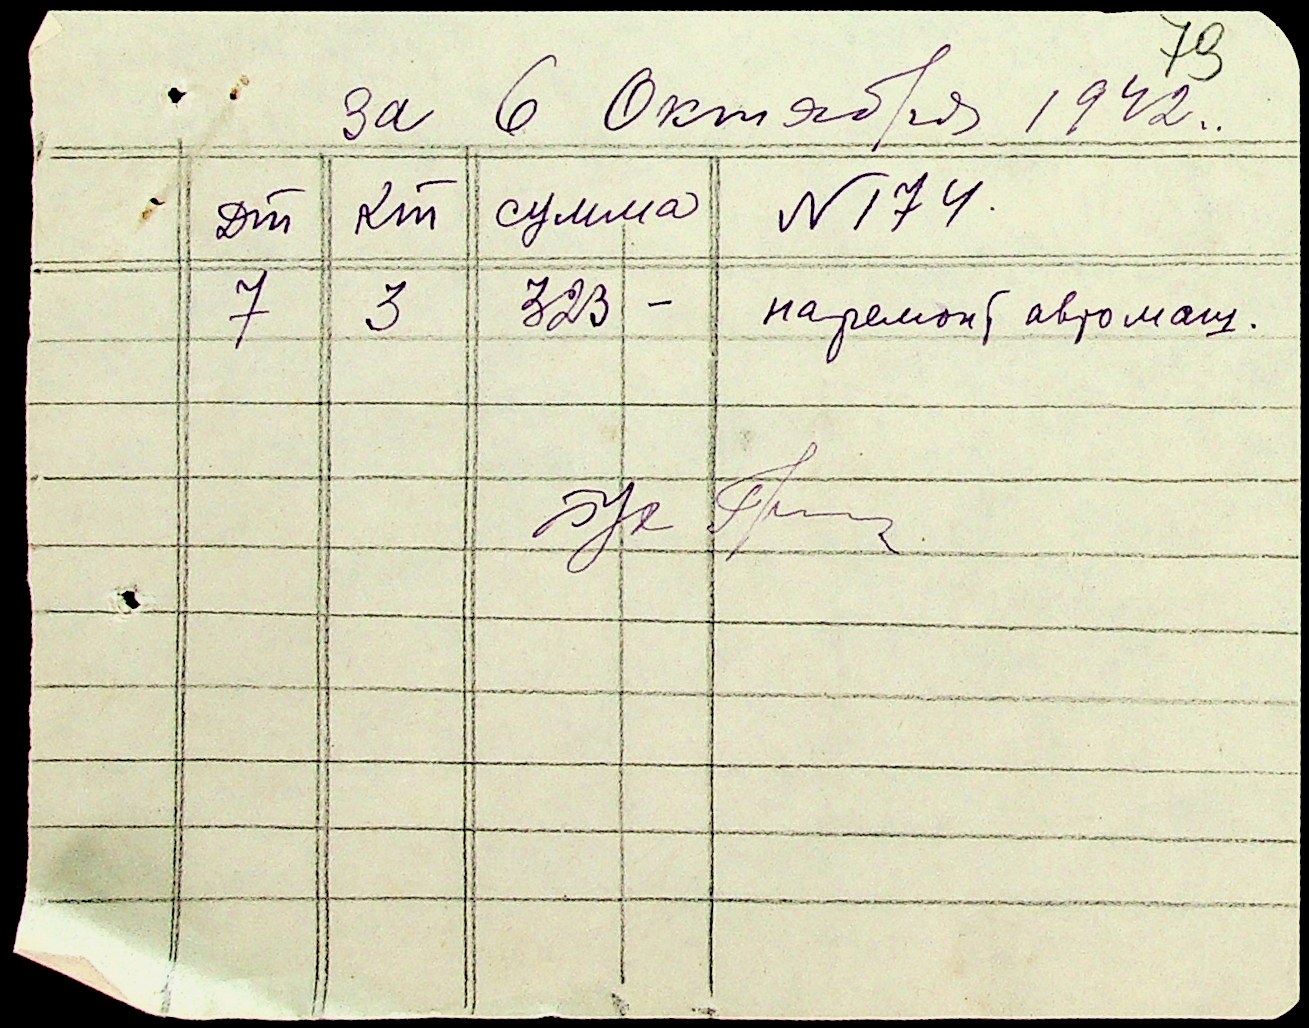 79
за 6 Октября 1942 г.
Дт Кт сумма № 174.
7 3 323 – на ремонт автомаш.
Бух